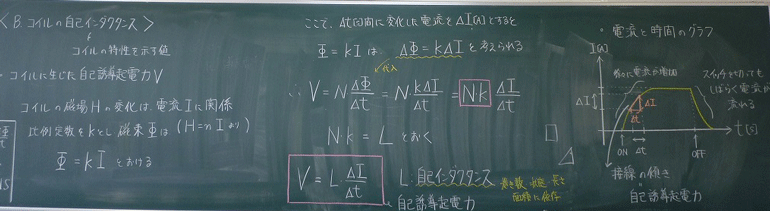 <B. コイルの自己インダクタンス>
コイルの特性を示す値
・コイルに生じた自己誘導起電力V
コイルの磁場Hの変化は、電流Iに関係
比例定数をkとし 磁束Φは (H=nIより)
Φ=kI とおける
ここで、Δt[s]間に変化した電流をΔI[A]とすると
Φ=kI は、ΔΦ=kΔI と考えられる
代入
∴ V=N ΔΦ/Δt = N kΔI/Δt = N・k ΔI/Δt
N・k = L とおく
V = L・ΔI/Δt
L: 自己インダクタンス
自己誘導起電力
・電流と時間のグラフ
I[A]
徐々に電流が増加
スイッチを切っても
しばらく電流が
流れる
ΔI
ΔI
t[s]
ON
Δt
OFF
接線の傾き
自己誘導起電力